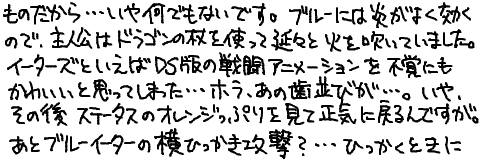 ものだから…いや何でもないです。ブルーには炎がよく効く
ので、主人公はドラゴンの杖を使って延々と火を吹いていました。
イーターズといえばDS版の戦闘アニメーションを不覚にも
かわいいと思ってしまった…ホラ、あの歯並びが…。いや、
その後ステータスのオレンジっぷりを見て正気に戻るんですが。
あとブルーイーターの横ひっかき攻撃？…ひっかくときに